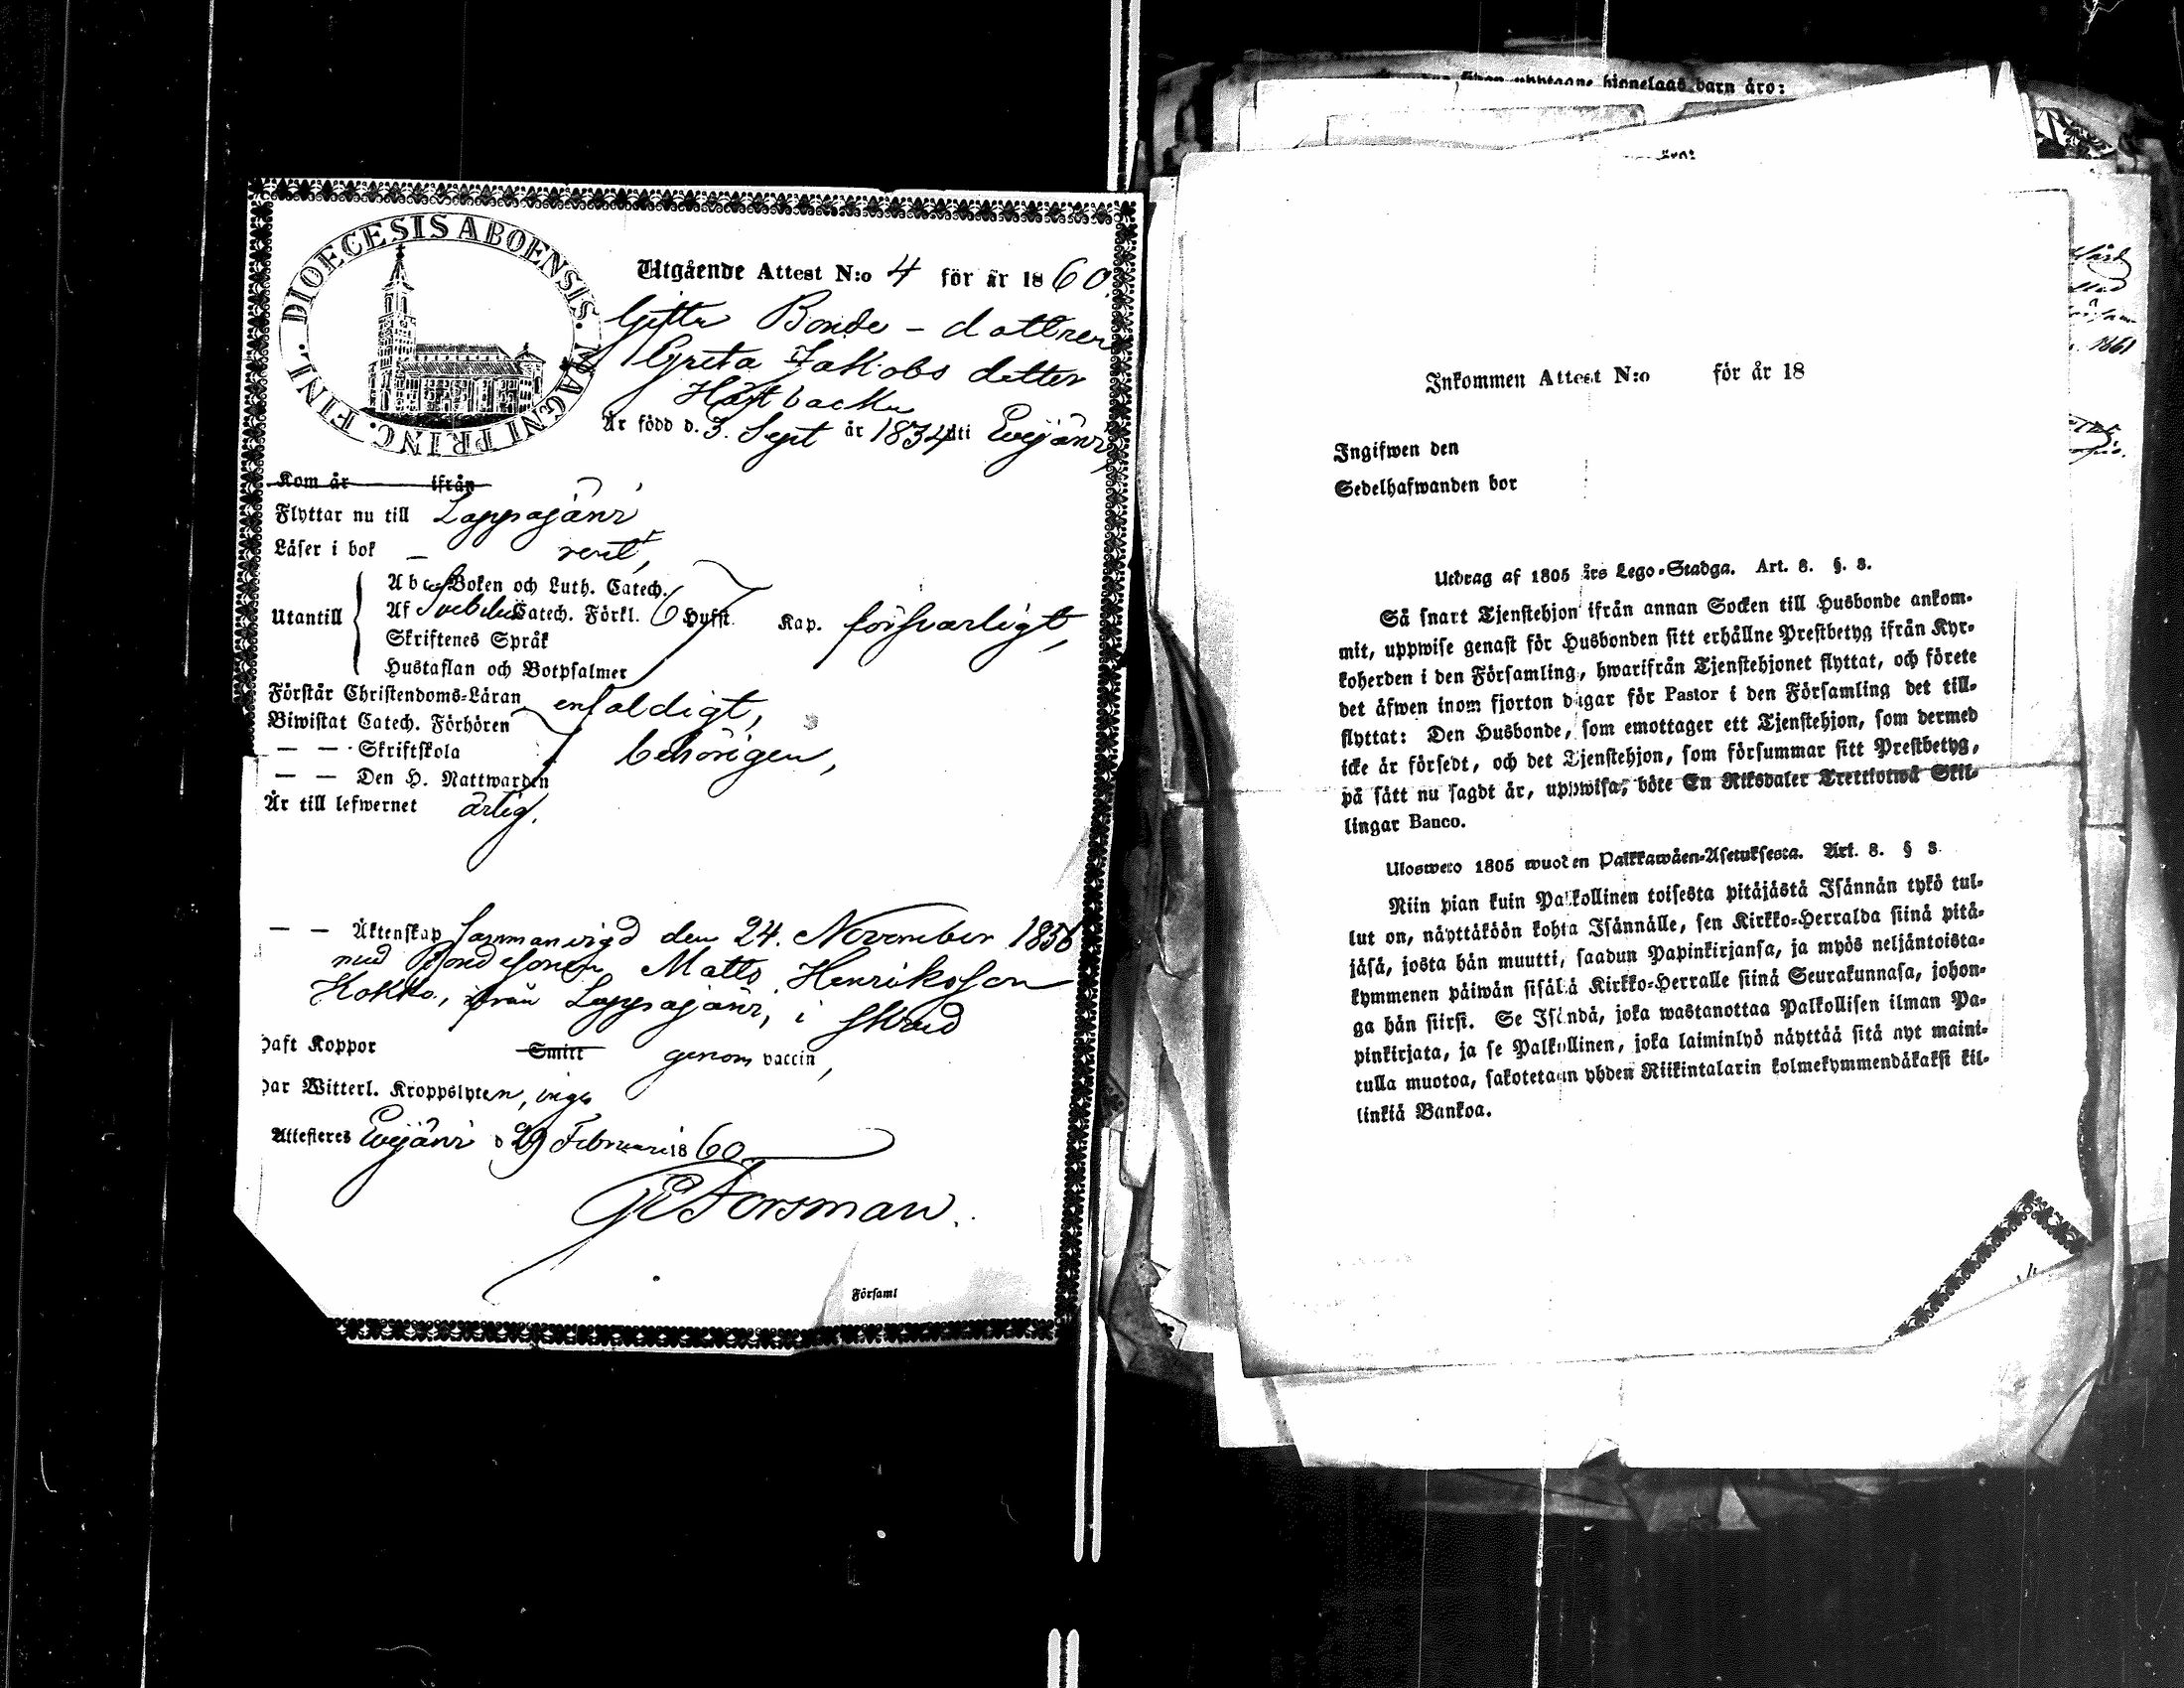 DIOECESIS ABOENSIS. MAGNI PRINC. FINI.
Utgående Attest N:o 4 för år 1860.
Gifta Bonde-dottren
Greta Jakobs dotter
Är född d. 3. Sept år 1834 uti Evijärvi,
Kom år ifrån
Flyttar nu till Lappajärvi
Läser i bok — rent,
Abc-Boken och Luth. Catech.
Utantill Af Svebelii Catech. Förkl. 6 Hufst. Kap. försvarligt,
Skriftenes Språk
Hustaflan och Botpsalmer
Förstår Christendoms-Läran enfaldigt,
Biwistat Catech. Förhören
— — Skriftskola behörigen,
— — Den H. Nattwarden
Är till lefwernet ärlig.
— — Äktenskap Sammanvigd den 24. November 1856
med Bondesonen Matts Henriksson
Kokko, ifrån Lappajärvi, i
haft Koppor Smitt genom vaccin,
har Witterl. Kroppslyten, inga
Attesteres Evijärvi d 29 Februari 1860
Forsman.
Församl
hionelags barn äro:
Inkommen Attest N:o för år 18
Ingifwen den
Sedelhafwanden bor
Utdrag af 1805 års Lego-Stadga. Art. 8. §. 3.
Så snart Tjenstehjon ifrån annan Socken till Husbonde ankom-
mit, uppwise genast för Husbonden sitt erhållne Prestbetyg ifrån Kyr-
koherden i den Församling, hwarifrån Tjenstehjonet flyttat, och förete
det äfwen inom fjorton dagar för Pastor i den Församling det till-
flyttat: Den Husbonde, som emottager ett Tjenstehjon, som dermed
icke är försedt, och det Tjenstehjon, som försummar sitt Prestbetyg,
på sätt nu sagdt är, uppwisa, böte En Riksdaler Trettiotwå Skil-
lingar Banco.
Ulosweto 1805 wuoten Palkkawäen-Asetuksesta. Art. 8. § 3.
Niin pian kuin Palkollinen toisesta pitäjästä Isännän tykö tul-
lut on, näyttäköön kohta Isännälle, sen Kirkko-Herralda siinä pitä-
jäsä, josta hän muutti, saadun Papinkirjansa, ja myös neljäntoista-
kymmenen päiwän sisälä Kirkko-Herralle siinä Seurakunnasa, johon-
ga hän siirsi. Se Isändä, joka wastanottaa Palkollisen ilman Pa-
pinkirjata, ja se Palkollinen, joka laiminlyö näyttää sitä nyt maini-
tulla muotoa, sakotetaan yhden Riikintalarin kolmekymmendäkaksi kil-
linkiä Bankoa.
1861